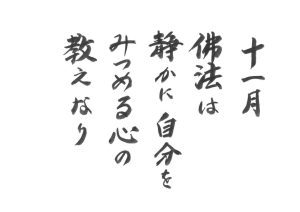 十一月
佛法は
静かに自分を
みつめる心の
教えなり